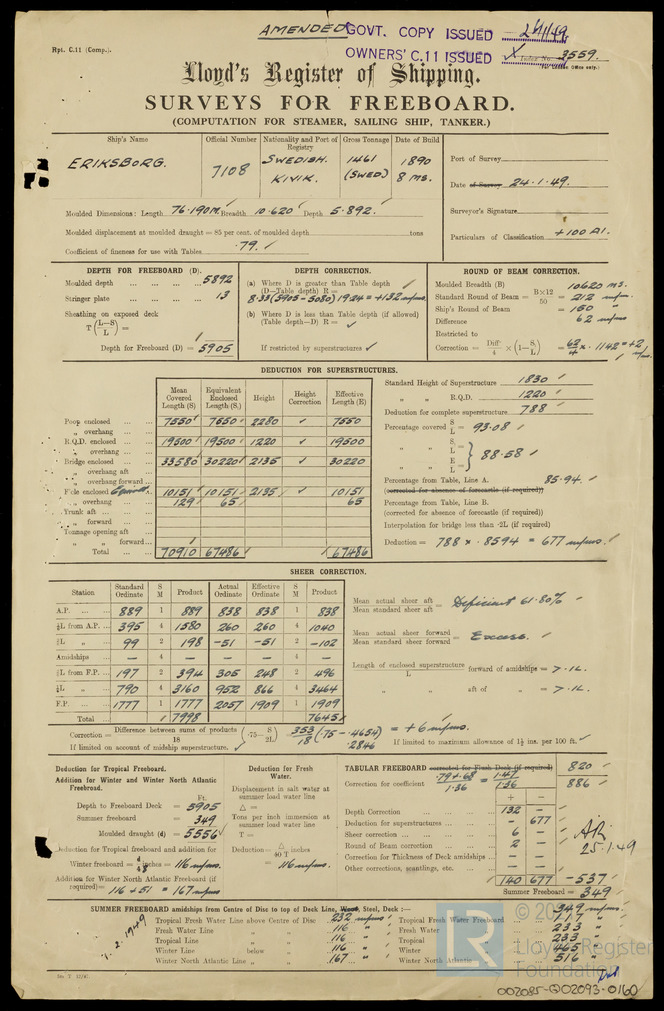 AMENDED GOVT. COPY ISSUED 24/1/49
Rpt. C.11 (Comp.). OWNERS' C.11 ISSUED X Index No. 3559.
Lloyd's Register of Shipping.
SURVEYS FOR FREEBOARD.
(COMPUTATION FOR STEAMER, SAILING SHIP, TANKER.)
Ship's Name Official Number Nationality and Port of Registry Gross Tonnage Date of Build
ERIKSBORG. 7108 SWEDISH. KIVIK. 1461 (SWED) 1890 8 MS.
Port of Survey
Date of Survey 24.1.49.
Surveyor's Signature
Particulars of Classification +100 A1.
Moulded Dimensions: Length 76.190M. Breadth 10.620 Depth 5.892.
Moulded displacement at moulded draught = 85 per cent. of moulded depth tons
Coefficient of fineness for use with Tables .79.
DEPTH FOR FREEBOARD (D).
Moulded depth 5892
Stringer plate 13
Sheathing on exposed deck
T (L-S/L) =
Depth for Freeboard (D) = 5905
DEPTH CORRECTION.
(a) Where D is greater than Table depth
(D—Table depth) R =
8.33 (5905 - 5080) 19.24 = +132 m/ms.
(b) Where D is less than Table depth (if allowed)
(Table depth—D) R =
If restricted by superstructures
ROUND OF BEAM CORRECTION.
Moulded Breadth (B) 10620 MS.
Standard Round of Beam = B×12/50 = 212 m/m.
Ship's Round of Beam = 150
Difference 62 m/ms
Restricted to
Correction = Diff/4 × (1 - S/L) = 62/4 × .1142 = +2 m/ms.
DEDUCTION FOR SUPERSTRUCTURES.
Mean Covered Length (S) Equivalent Enclosed Length (S₁) Height Height Correction Effective Length (E)
Poop enclosed 7550 7550 2280 ✓ 7550
" overhang
R.Q.D. enclosed 19500 19500 1220 ✓ 19500
" overhang
Bridge enclosed 33580 30220 2135 30220
" overhang aft
" overhang forward
F'cle enclosed 10151 10151 2135 ✓ 10151
" overhang 129 65 65
Trunk aft
" forward
Tonnage opening aft
" " forward
Total 70910 67486 67486
Standard Height of Superstructure 1830
" " R.Q.D. 1220
Deduction for complete superstructure 788
Percentage covered S/L = 93.08
" " S₁/L = } 88.58
" " E/L =
Percentage from Table, Line A. 85.94.
(corrected for absence of forecastle (if required))
Percentage from Table, Line B.
(corrected for absence of forecastle (if required))
Interpolation for bridge less than ·2L (if required)
Deduction = 788 × .8594 = 677 m/ms.
SHEER CORRECTION.
Station Standard Ordinate S M Product Actual Ordinate Effective Ordinate S M Product
A.P. 889 1 889 838 838 1 838
⅙L from A.P. 395 4 1580 260 260 4 1040
⅓L " 99 2 198 -51 -51 2 -102
Amidships — 4 — — — 4 —
⅓L from F.P. 197 2 394 305 248 2 496
⅙L " 790 4 3160 952 866 4 3464
F.P. 1777 1 1777 2057 1909 1 1909
Total 7998 7645
Mean actual sheer aft / Mean standard sheer aft = Deficient 61.80%
Mean actual sheer forward / Mean standard sheer forward = Excess.
Length of enclosed superstructure / L forward of amidships = >.1L.
" " aft of " = >.1L.
Correction = Difference between sums of products / 18 (·75 - S/2L) = 353/18 (.75 - .4654) .2846 = +6 m/ms.
If limited on account of midship superstructure. If limited to maximum allowance of 1½ ins. per 100 ft.
Deduction for Tropical Freeboard.
Addition for Winter and Winter North Atlantic Freeboard.
Ft.
Depth to Freeboard Deck = 5905
Summer freeboard = 349
Moulded draught (d) = 5556
Deduction for Tropical freeboard and addition for
Winter freeboard = d/48 inches = 116 m/ms.
Addition for Winter North Atlantic Freeboard (if required) = 116 + 51 = 167 m/ms
Deduction for Fresh Water.
Displacement in salt water at summer load water line
Δ =
Tons per inch immersion at summer load water line
T =
Deduction = Δ/40 T inches
= 116 m/ms.
TABULAR FREEBOARD corrected for Flush Deck (if required) 820
Correction for coefficient .79+.68/1.36 = 1.47/1.36 886
+ -
Depth Correction 132 —
Deduction for superstructures — 677
Sheer correction 6 —
Round of Beam correction 2 —
Correction for Thickness of Deck amidships — —
Other corrections, scantlings, etc.
140 677 -537
Summer Freeboard = 349
25.1.49
SUMMER FREEBOARD amidships from Centre of Disc to top of Deck Line, Wood, Steel, Deck :— 349 m/ms
Tropical Fresh Water Line above Centre of Disc 232 m/ms Tropical Fresh Water Freeboard 117 "
Fresh Water Line " " 116 " Fresh Water " 233 "
Tropical Line " " 116 " Tropical " 233 "
Winter Line below " 116 " Winter " 465 "
Winter North Atlantic Line " " 167 " Winter North Atlantic " 516 "
1.2.1949
LR
Lloyd's Register
Foundation
002085-002093-0160